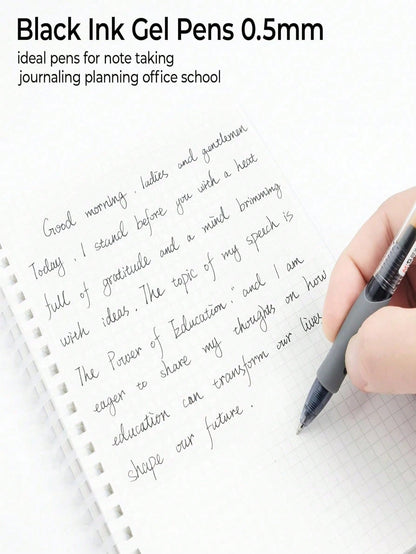 Black Ink Gel Pens 0.5mm
ideal pens for note taking
journaling planning office school
Good morning, ladies and gentlemen
Today, I stand before you with a heat
full of gratitude and a mind brimming
with ideas. The topic of my speech is
The Power of Education." and I am
eager to share my thoughts on how
education can transform our lives
shape our future.